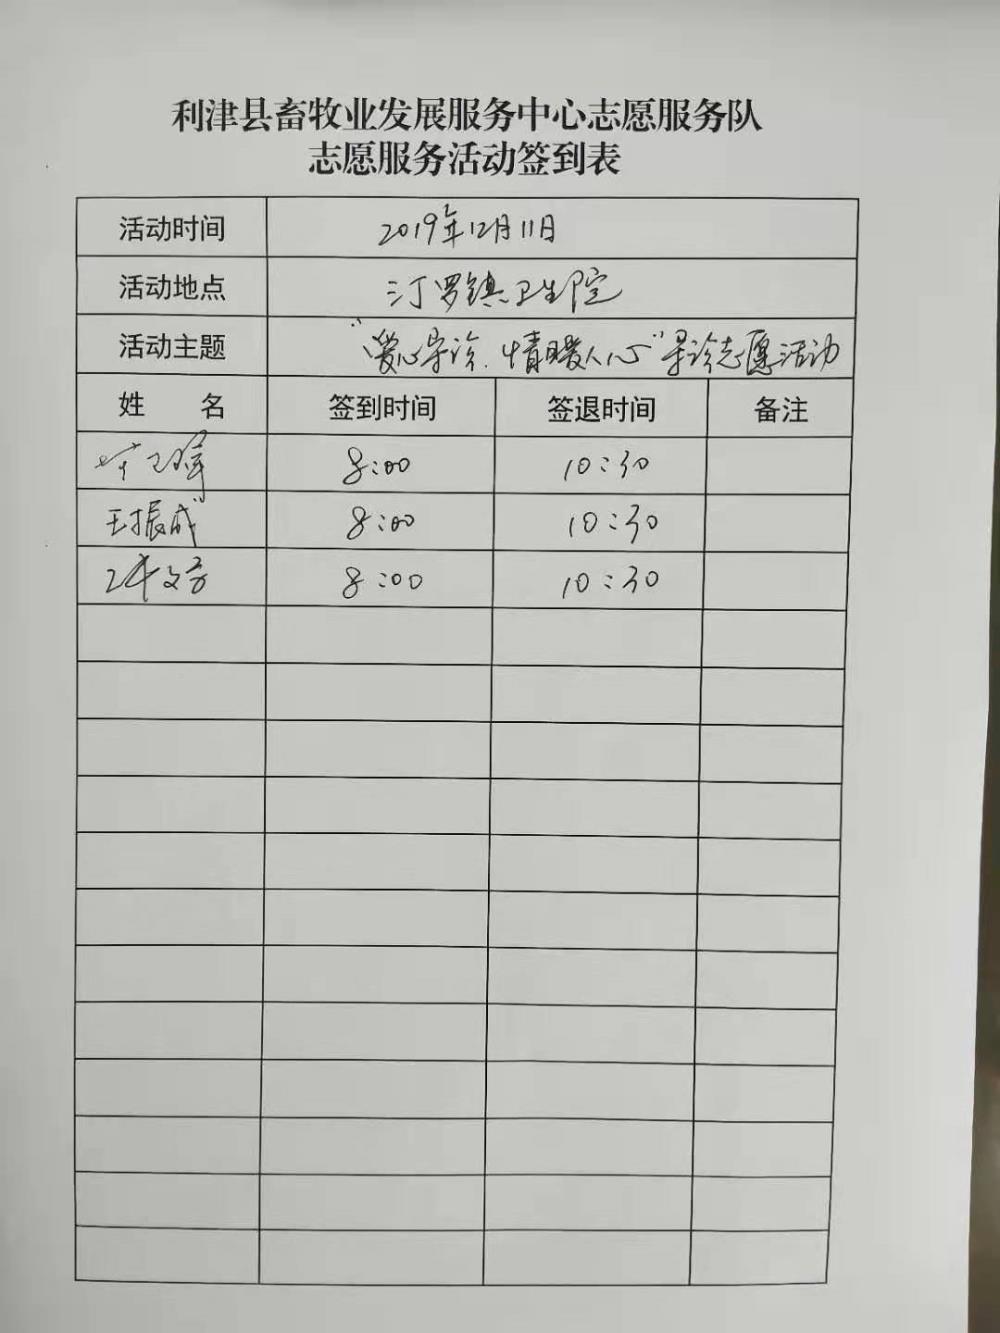 利津县畜牧业发展服务中心志愿服务队
志愿服务活动签到表
活动时间 2019年12月11日
活动地点 汀罗镇卫生院
活动主题 “爱心导诊.情暖人心”导诊志愿活动
姓 名 签到时间 签退时间 备注
8:00 10:30
王振成 8:00 10:30
8:00 10:30